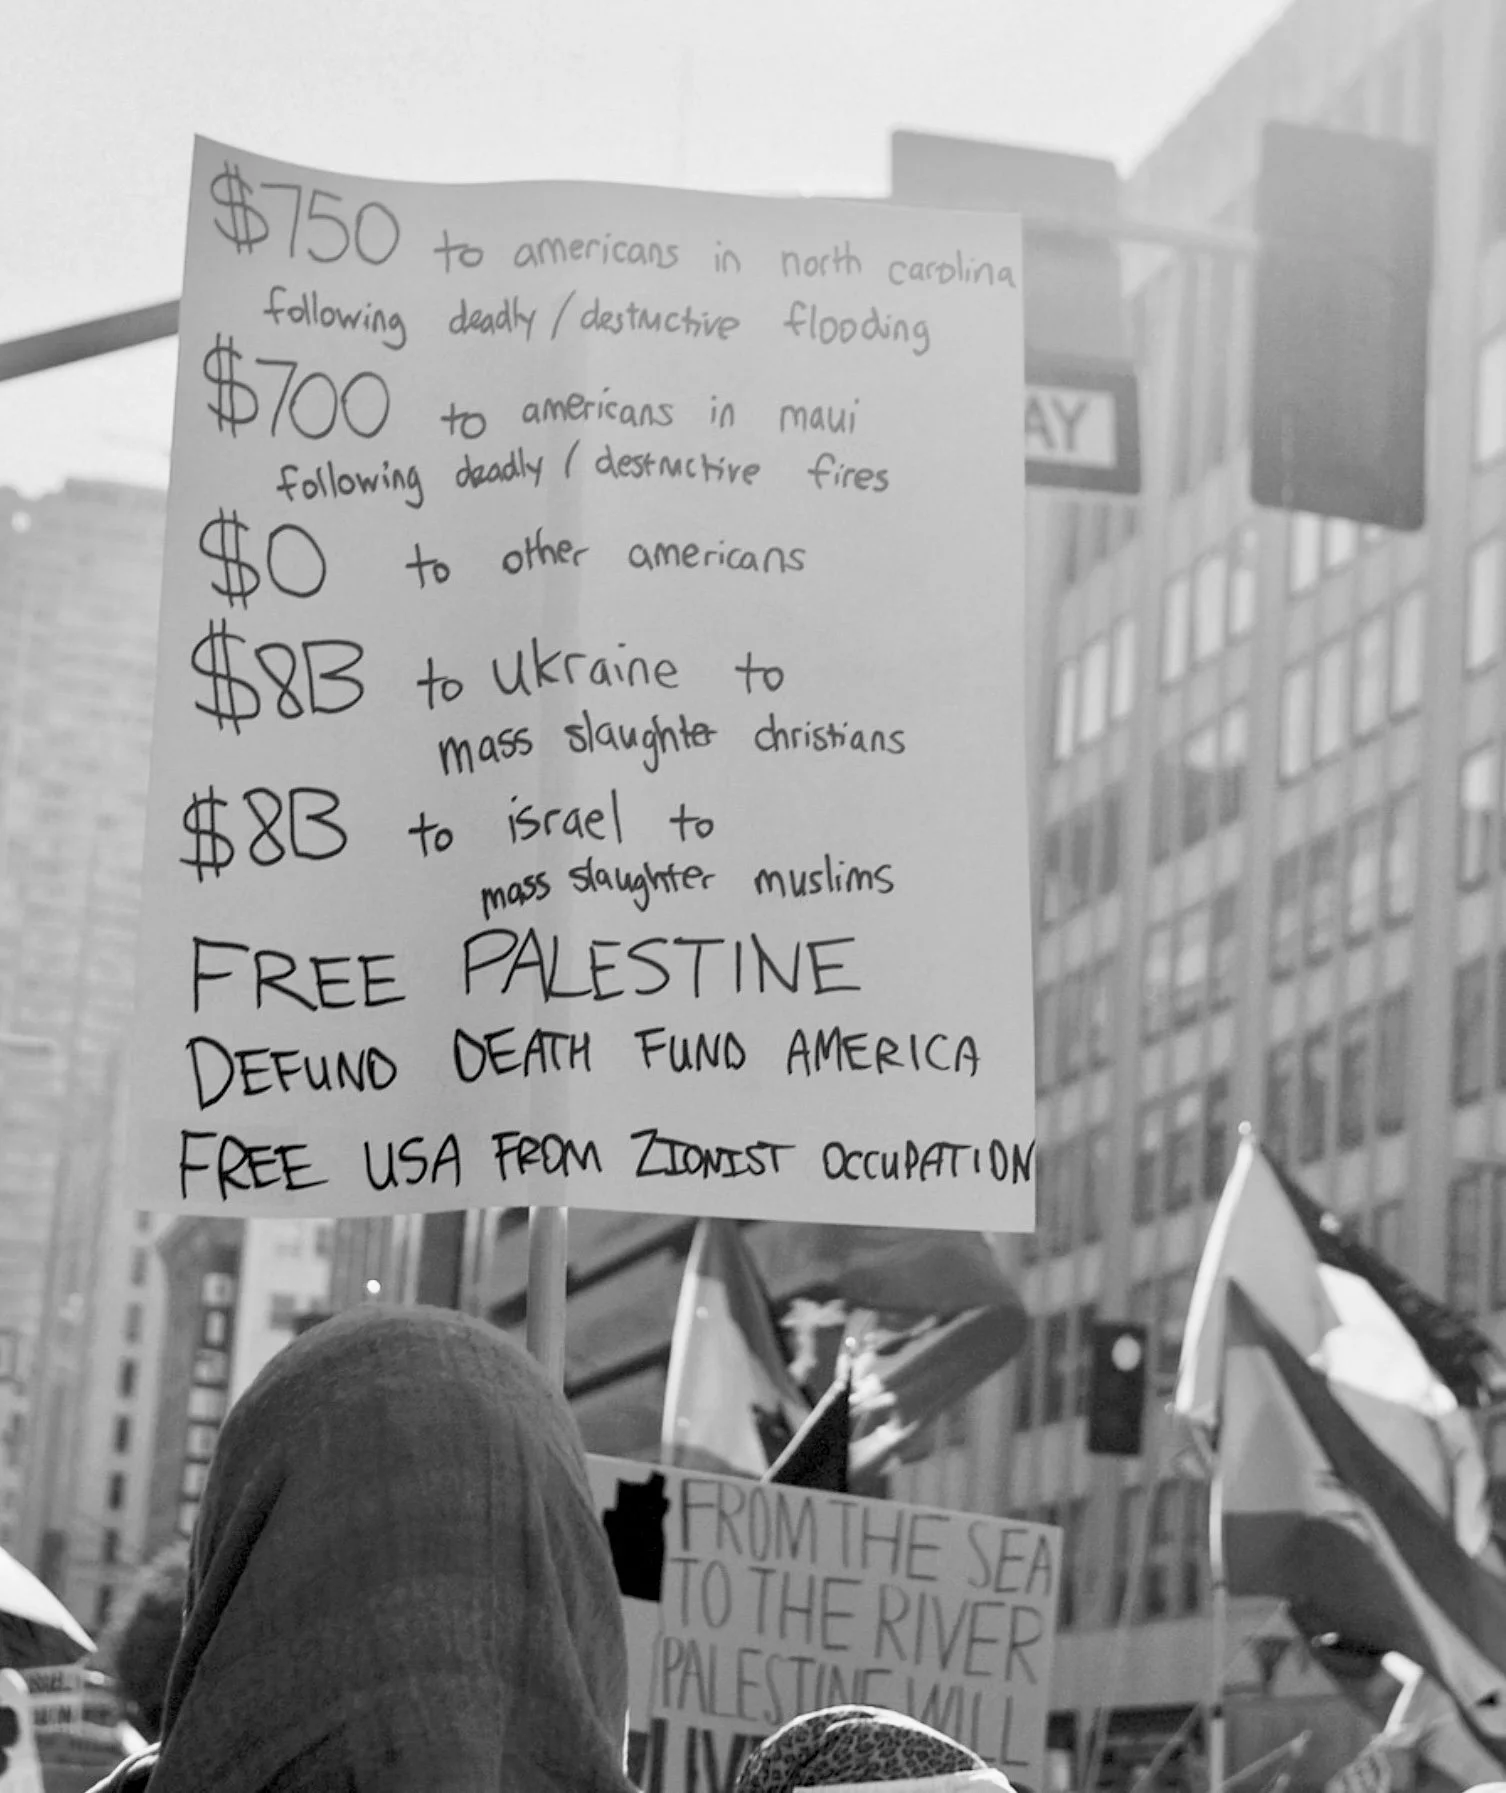 $750 to americans in north carolina
following deadly / destructive flooding
$700 to americans in maui
following deadly / destructive fires
$0 to other americans
$8B to ukraine to
mass slaughter christians
$8B to israel to
mass slaughter muslims
FREE PALESTINE
DEFUND DEATH FUND AMERICA
FREE USA FROM ZIONIST OCCUPATION
AY
FROM THE SEA
TO THE RIVER
PALESTINE WILL